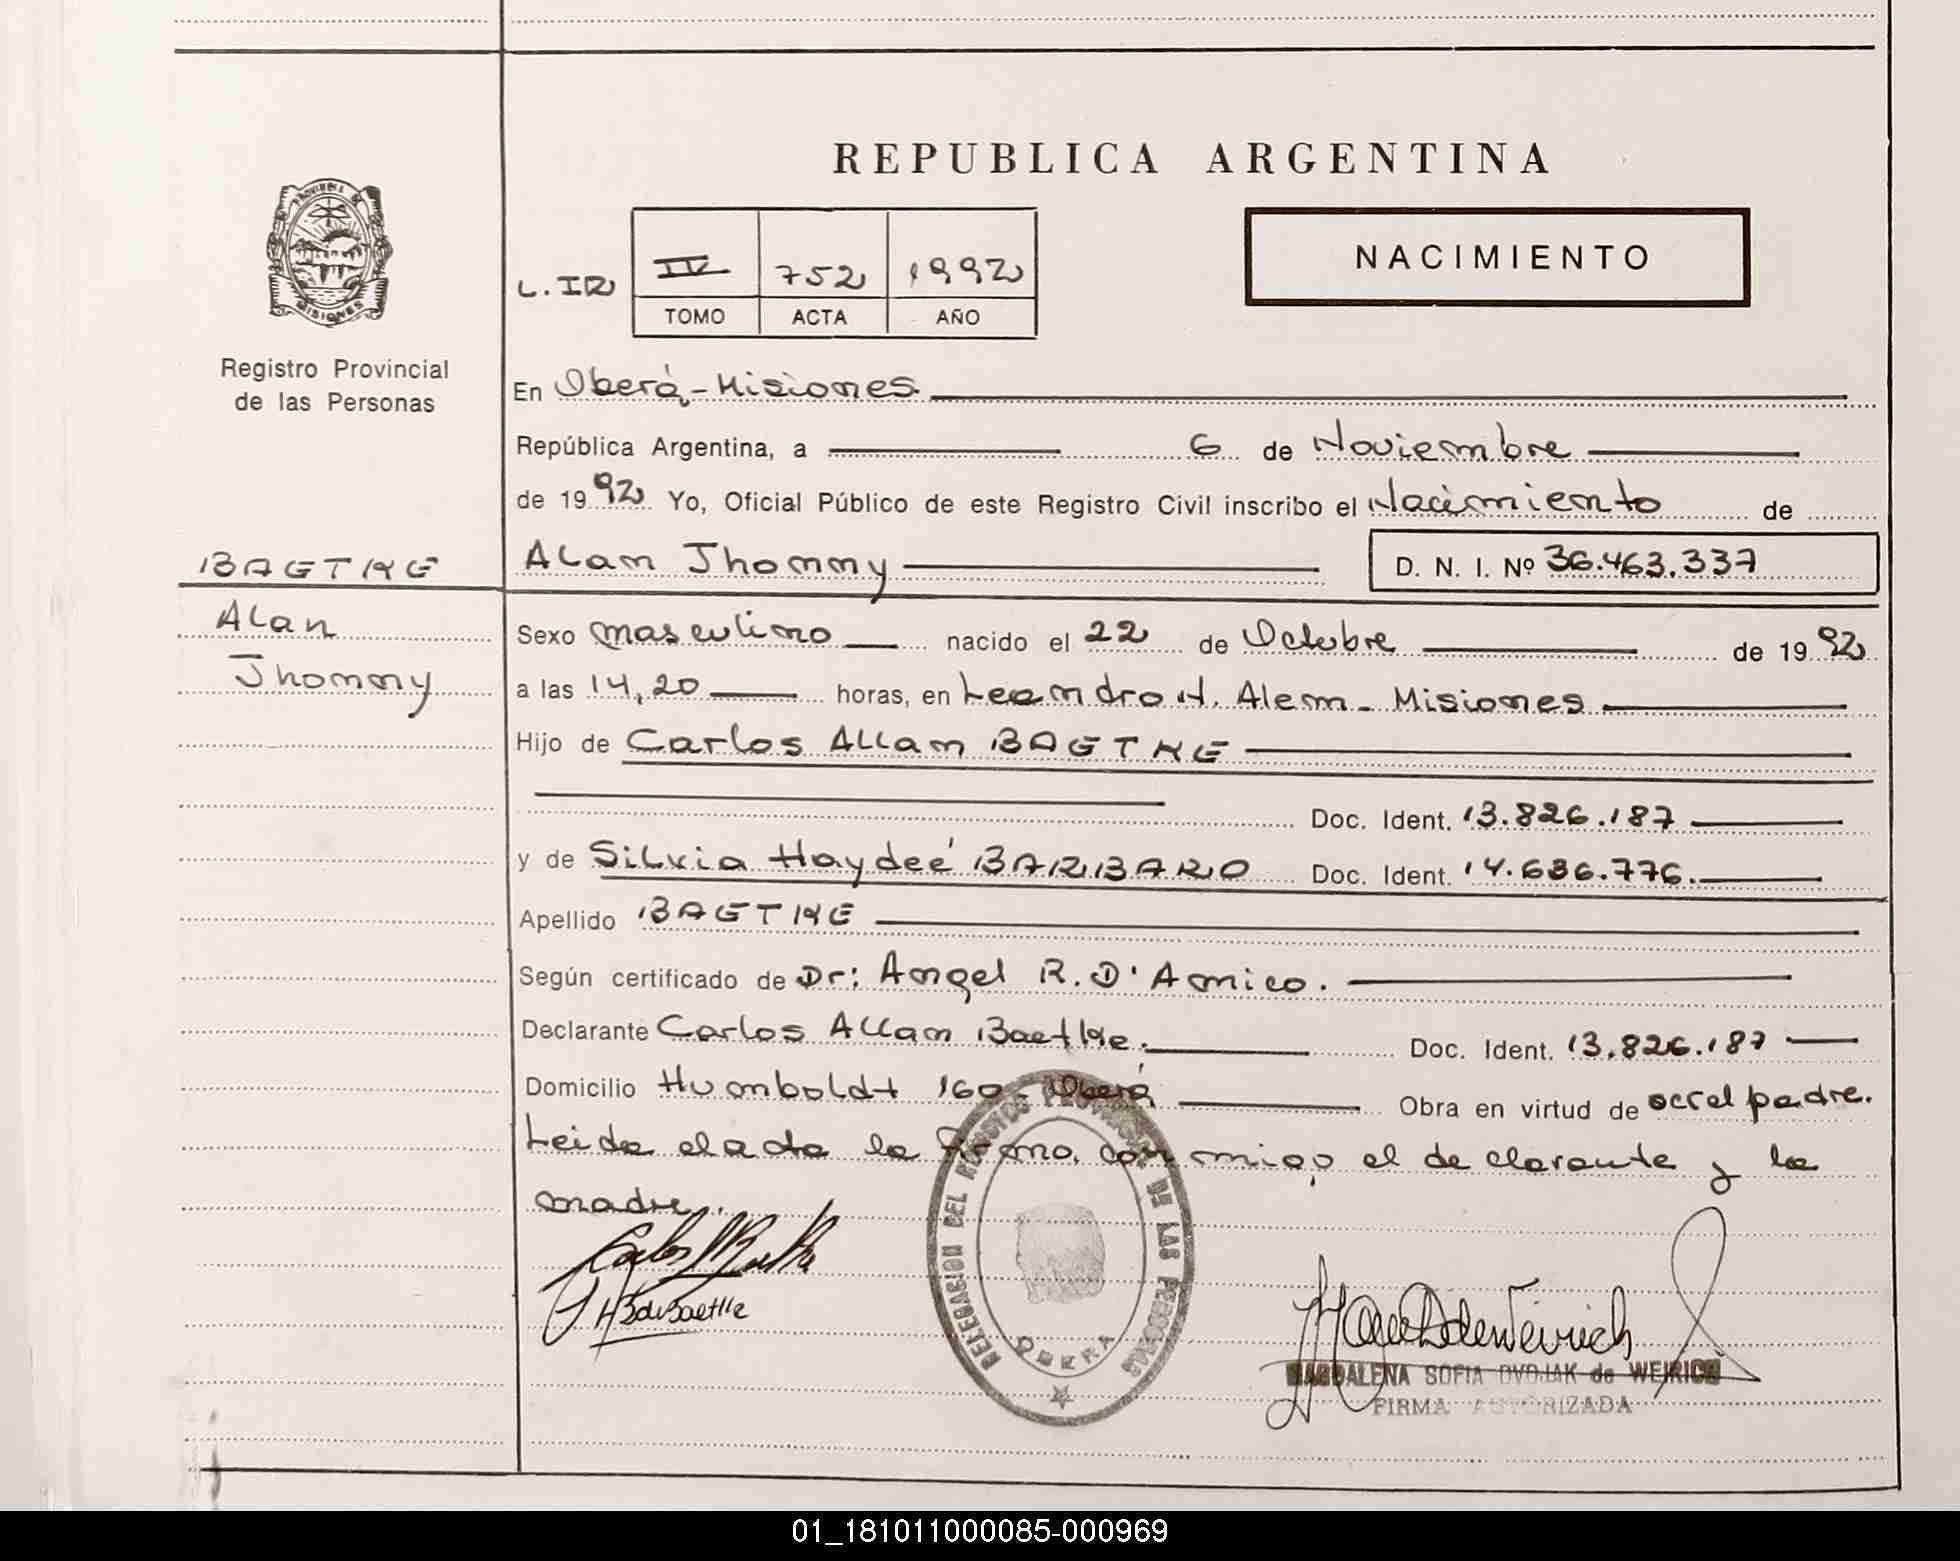 REPUBLICA ARGENTINA
PROVINCIA DE
MISIONES
Registro Provincial
de las Personas
L. IR
IV 752 1992
TOMO ACTA AÑO
NACIMIENTO
En Oberá - Misiones
República Argentina, a 6 de Noviembre
de 1992 Yo, Oficial Público de este Registro Civil inscribo el Nacimiento de
BAETKE
Alan Jhommy D. N. I. Nº 36.463.337
Alan
Jhommy
Sexo masculino nacido el 22 de Octubre de 1992
a las 14,20 horas, en Leandro N. Alem - Misiones
Hijo de Carlos Allan BAETKE
Doc. Ident. 13.826.187
y de Silvia Haydeé BARBARO Doc. Ident. 14.636.776.
Apellido BAETKE
Según certificado de Dr: Angel R. D'Amico.
Declarante Carlos Allan Baetke. Doc. Ident. 13.826.187
Domicilio Humboldt 160 - Oberá Obra en virtud de ser el padre.
Leida el acta la firma, con migo el declarante y la
madre.
DELEGACION DEL REGISTRO PROVINCIAL DE LAS PERSONAS
OBERA
MAGDALENA SOFIA DVOJAK de WEIRICH
FIRMA AUTORIZADA
01_181011000085-000969